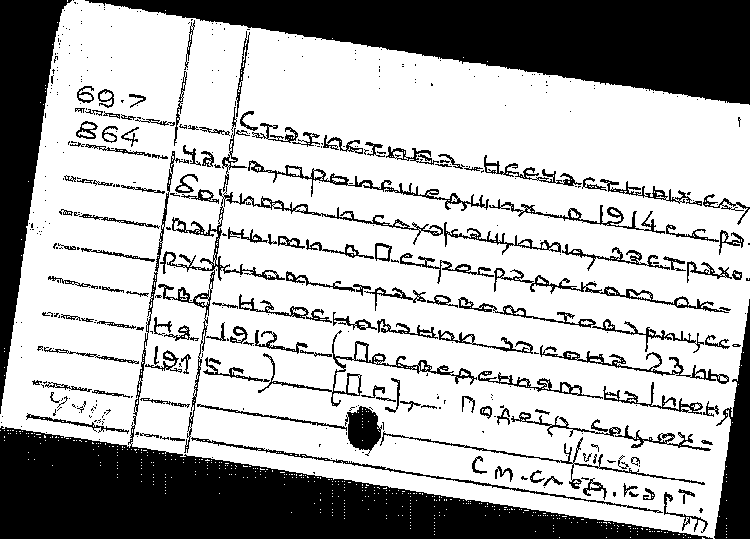 69.7
864
Статистика несчастных слу
чаев, происшедших в 1914 г. с ра
бочими и служащими, застрахо
ванными в Петроградском ок-
ружном страховом товарищес-
тве на основании закона 23 ию-
ня 1912 г. (По сведениям на 1 июня
1915 г.) [Пг], Подотд. соц. ох-
4/VII-69
См. след. карт.